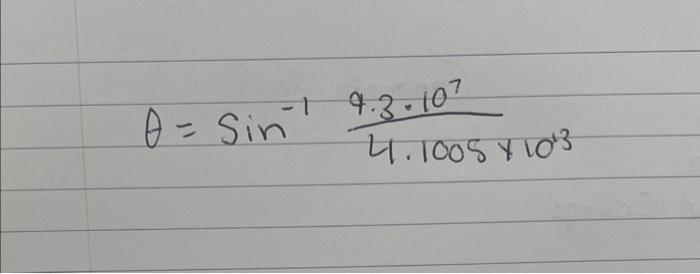 θ = Sin⁻¹ 9.3 · 10⁷ / 4.1005 × 10¹³